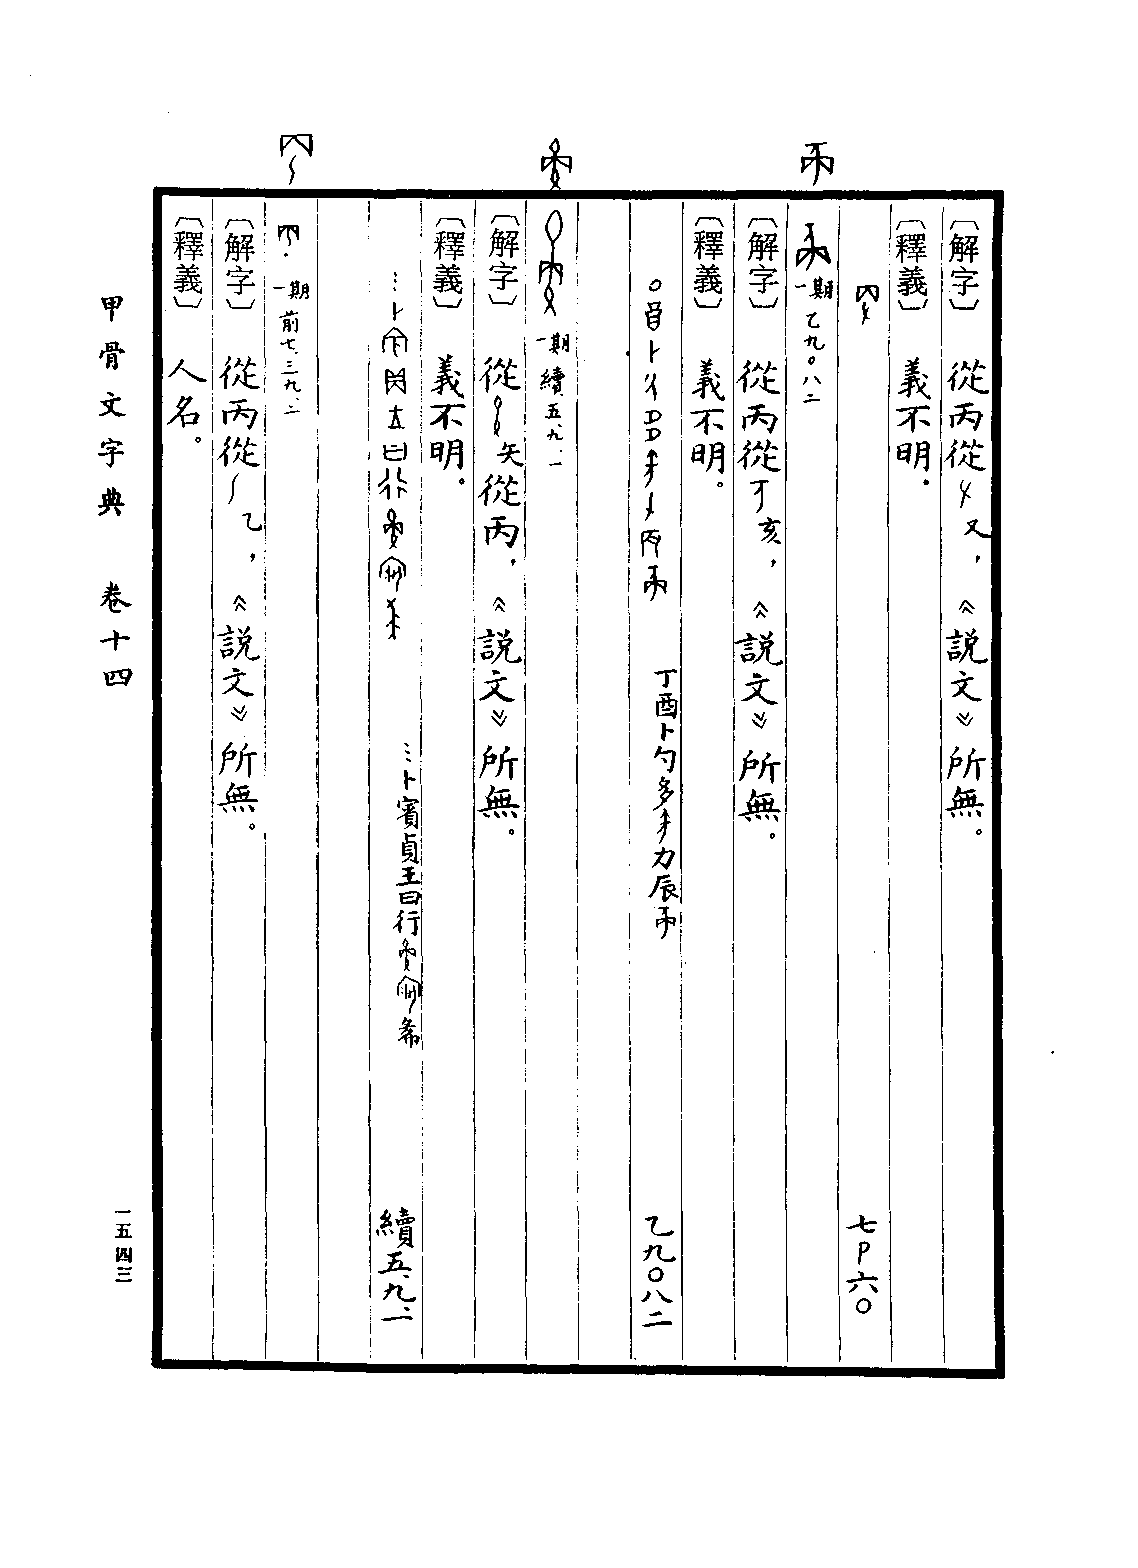 〔解字〕從丙從又，《說文》所無。
〔釋義〕義不明．
七P六〇
一期 乙九〇八二
〔解字〕從丙從亥，《說文》所無。
〔釋義〕義不明。
丁酉卜勺多力辰
乙九〇八二
一期 續五.九.一
〔解字〕從矢從丙，《說文》所無。
〔釋義〕義不明．
⋮卜賓貞王曰行
續五.九.一
一期 前七.三九.二
〔解字〕從丙從乙，《說文》所無。
〔釋義〕人名。
甲骨文字典 卷十四
一五四三